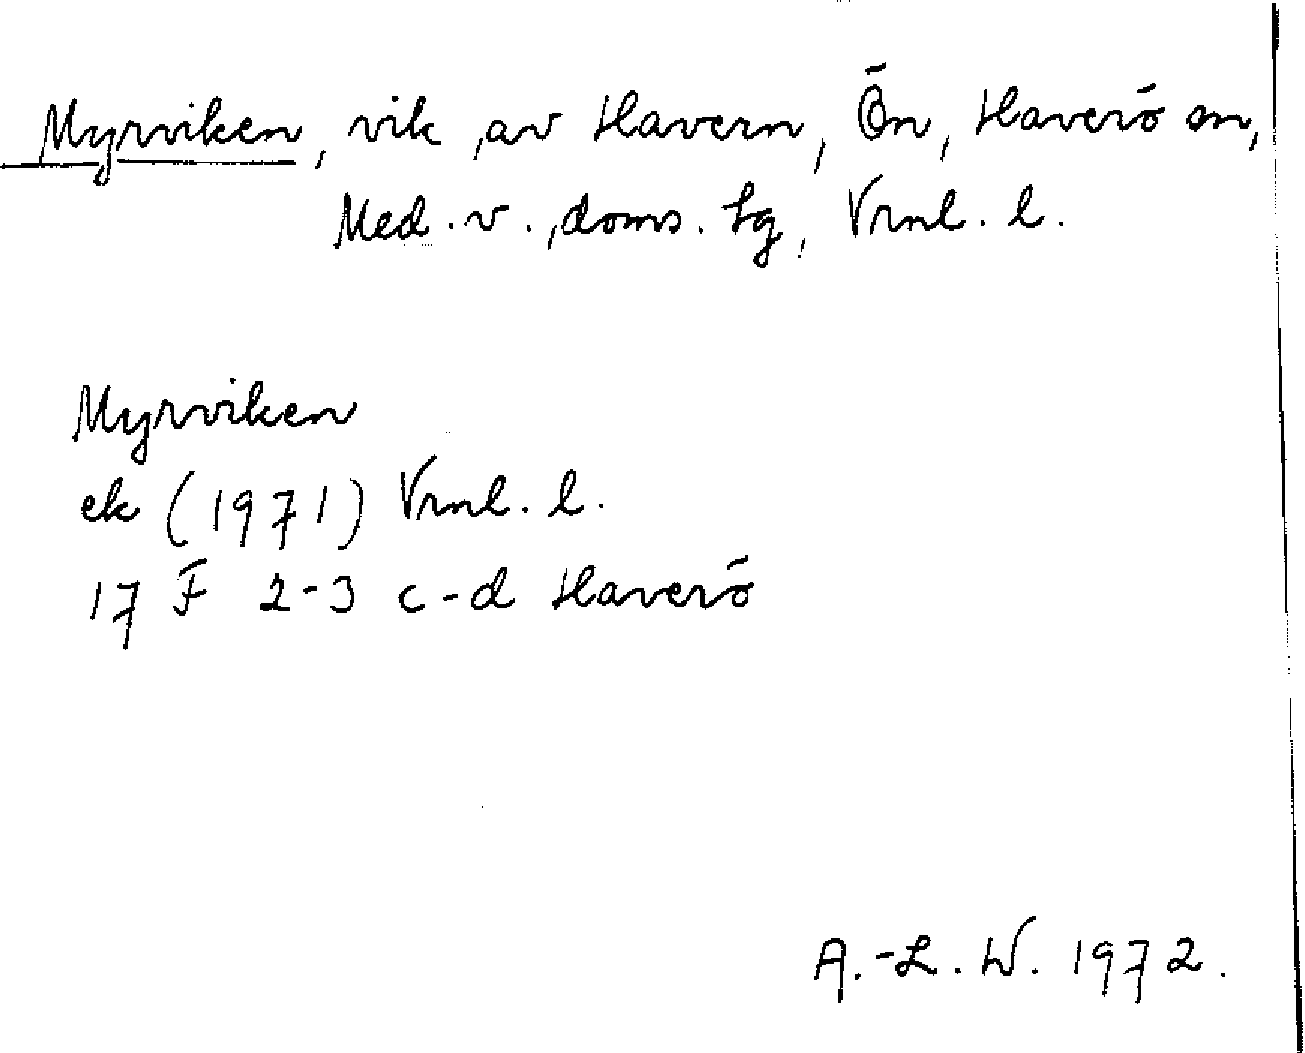 Myrviken, vik av Havern, Ön, Haverö sn,
Med. v., doms. tg, Vrnl. l.
Myrviken
ek (1971) Vrnl. l.
17 F 2-3 c-d Haverö
A.-L. W. 1972.